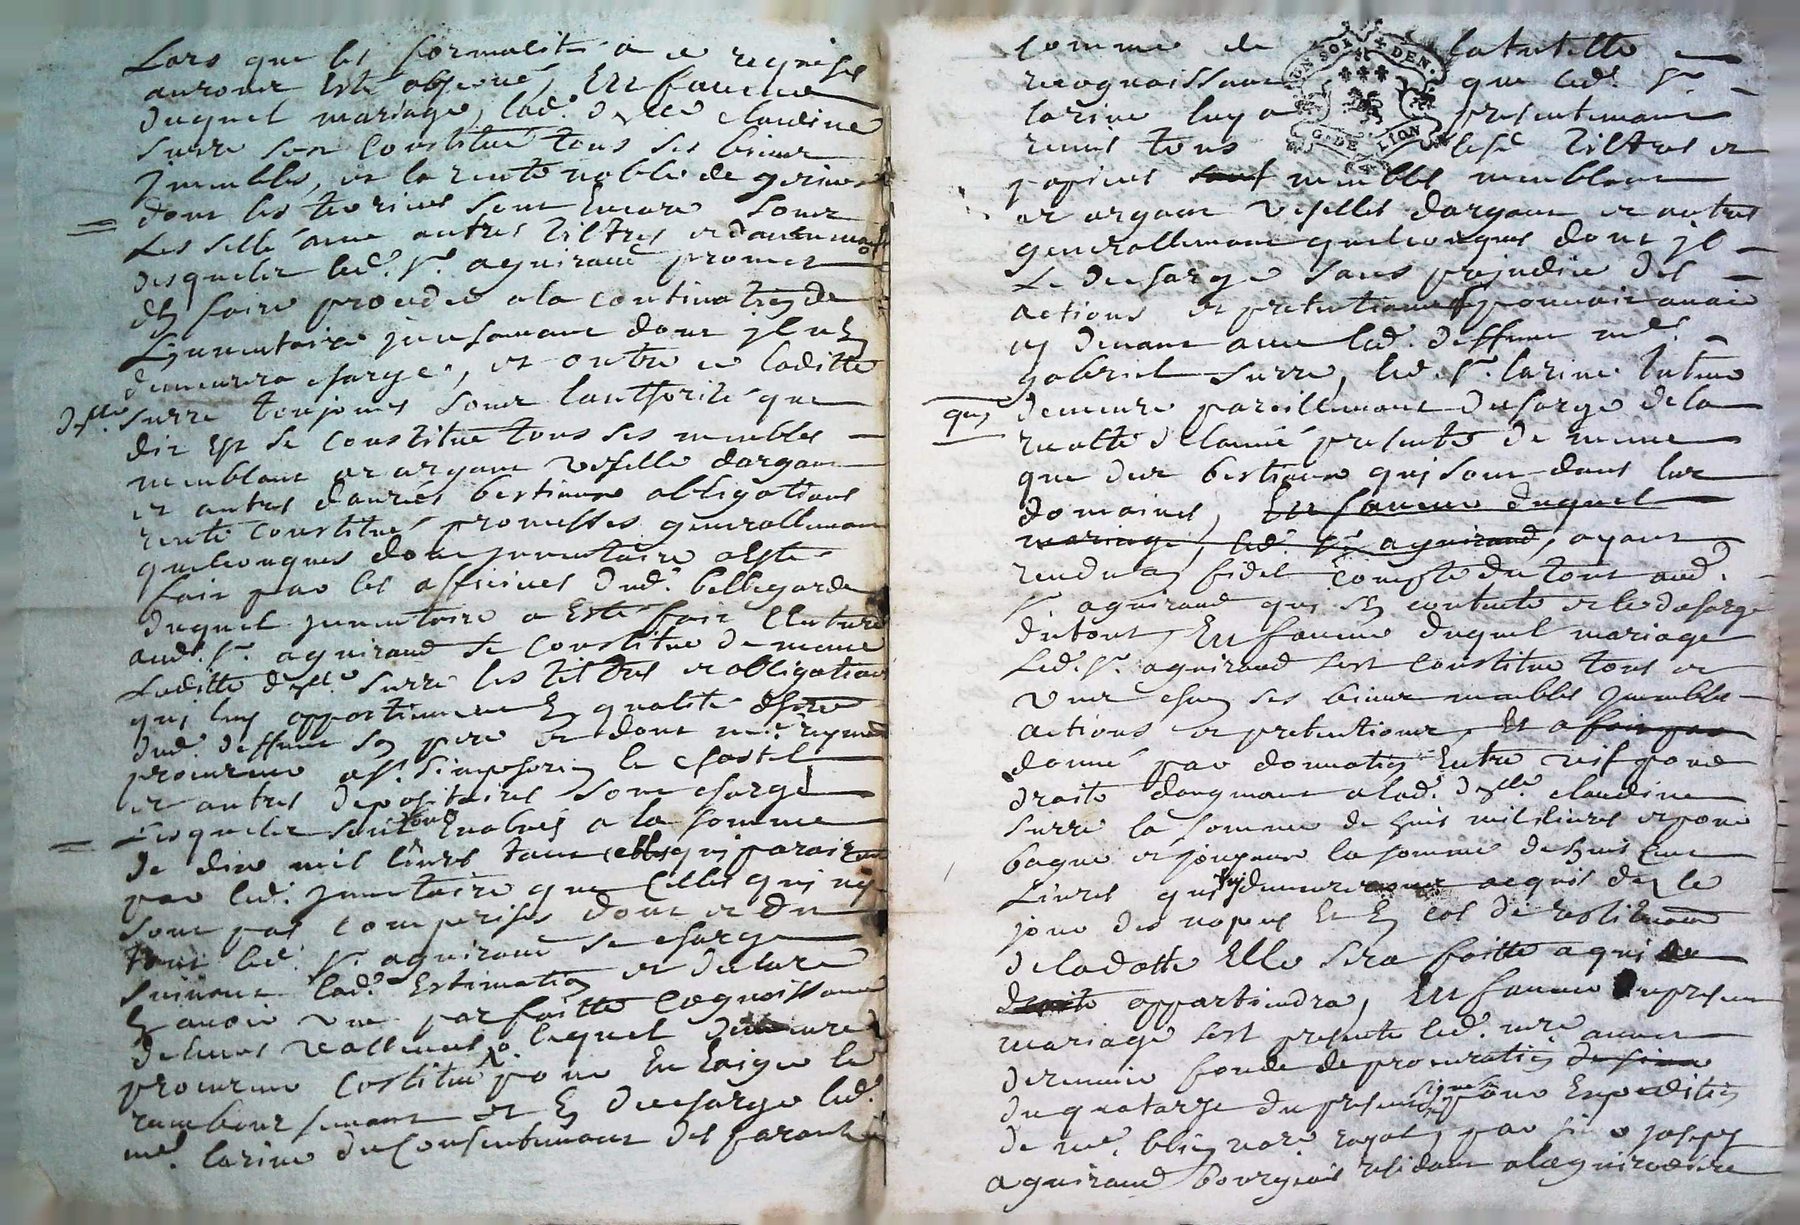 Lors que les formalités a ce requises
auront esté observé, En faueur
duquel mariage, lad. dlle claudine
surre sest Constitué tous ses biens
Immeubles, et la rente noble de
dont les terriers sont Encore soubs
Les sellé auec autres tiltres et documents
desquels led. Sr. aguiraud promet
dy faire proceder a la continuation de
Linuentaire Incessament dont Il en
demeurera charge, et outre ce laditte
dlle. surre toujours soubs lauthorité que
dit Est se Constitue tous ses meubles
meublant et argent vesselle dargent
et autres danrées bestiaux obligations
rente constitué promesses generallement
quelconques dont Inuentaire a esté
fait par les officiers dud. bellegarde
duquel Inuentaire a Esté fait lecture
aud. Sr. aguiraud se Constitue de meme
Laditte dlle. surre les tiltres et obligations
qui luy appartiennent En qualité
dud. deffunt son pere et dont me.
procureur a St. Simphorien le chastel
et autres depositaires sont chargé
Lesquels sont Eualués a la somme
de dix mil liures tant celles qui paroissent
par led. Inuentaire que Celles qui ny
sont pas comprises dont et du
tout led. Sr. aguiraud se charge
suiuant lad. Estimation et declare
En auoir une parfaitte cognoissance
lequel demeure
procureur Constitué pour En Exiger le
rembourcement et En descharge led.
me. larine du Consentement des parents
somme de la tutelle
recognoissant que led. Sr.
larine luy a presentement
remis tous lesd. tiltres et
papiers meubles meublant
et argent vesselles dargent et autres
generallement quelconques dont Il
Le descharge sans prejudice des
actions et pretentions pouuoit auoir
cy deuant auec led. deffunt me.
gabriel surre, led. Sr. larine tuteur
qui demeure pareillement descharge de la
recolte de lannée presente de meme
que des bestiaux qui sont dans les
domaines, En faueur duquel
mariage, led. Sr. aguiraud, ayant
rendu un fidel Compte du tout aud.
Sr. aguiraud qui sen contente et le descharge
du tout, En faueur duquel mariage
Led. Sr. aguiraud sest Constitué tous et
un chacun ses biens meubles Immeubles
actions et pretentions, Et a
donné par donnation Entre vifs pour
droits daugment a lad. dlle. claudine
surre la somme de huit mil liures et pour
bague et joyaux la somme de huit Cent
Liures qui luy demeureront acquis des le
jour des nopces Et En cas de restitution
de la dotte Elle sera faitte a qui de
droits appartiendra, En faueur du present
mariage sest presenté led. me
dernier fondé de procuration
du quatorze du present pour Expedition
de me. royal, par sieur joseph
aguiraud bourgeois residant a
GEN SOL DEN.
G. DE LION